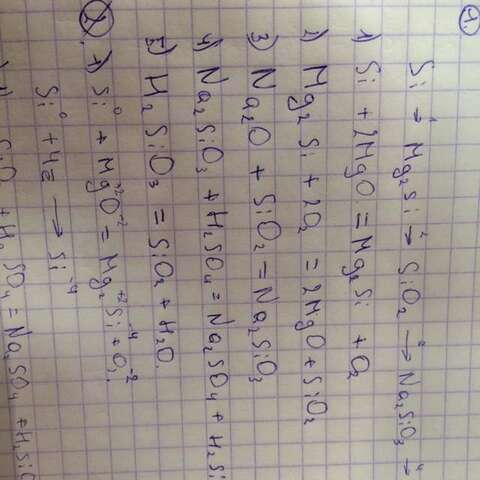 1.
Si →¹ Mg₂Si →² SiO₂ →³ Na₂SiO₃ →⁴
1) Si + 2MgO = Mg₂Si + O₂
2) Mg₂Si + 2O₂ = 2MgO + SiO₂
3) Na₂O + SiO₂ = Na₂SiO₃
4) Na₂SiO₃ + H₂SO₄ = Na₂SO₄ + H₂Si
5) H₂SiO₃ = SiO₂ + H₂O.
2. 1) Si⁰ + Mg⁺²O⁻² = Mg₂⁺²Si⁻⁴ + O₂⁻².
Si⁰ + 4ē → Si⁻⁴
SiO₃ + H₂SO₄ = Na₂SO₄ + H₂SiO